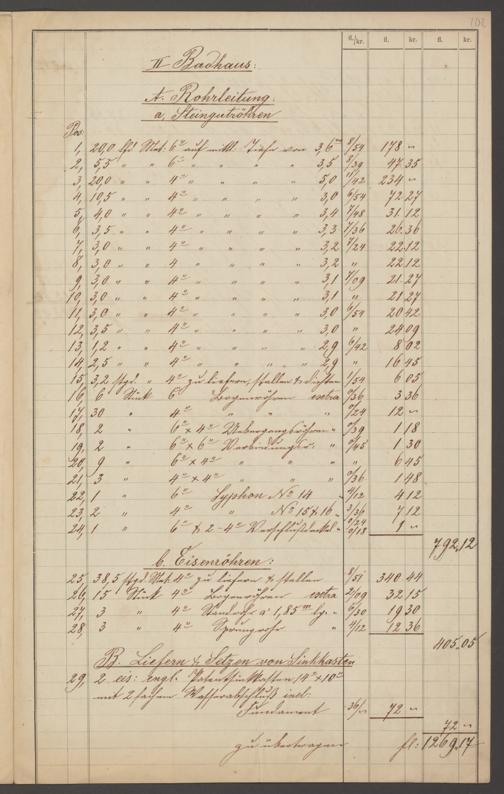 102
fl./kr. fl. kr. fl. kr.
II Badhaus:
A. Rohrleitung:
a. Steingutröhren
Pos.
1, 20,0 lfd. Met. 6" auf mittl. Tiefe von 3,6 m 8/54 178 "
2, 5,5 " " 6" " " " " 3,5 8/39 47 35
3, 20,0 " " 4" " " " " 5,0 11/42 234 "
4, 10,5 " " 4" " " " " 3,0 6/54 72 27
5, 4,0 " " 4" " " " " 3,4 7/48 31 12
6, 3,5 " " 4" " " " " 3,3 7/36 26 36
7, 3,0 " " 4" " " " " 3,2 7/24 22 12
8, 3,0 " " 4 " " " " 3,2 " 22 12
9, 3,0 " " 4" " " " " 3,1 7/09 21 27
10, 3,0 " " 4" " " " " 3,1 " 21 27
11, 3,0 " " 4" " " " " 3,0 6/54 20 42
12, 3,5 " " 4" " " " " 3,0 " 24 09
13, 1,2 " " 4" " " " " 2,9 6/42 8 02
14, 2,5 " " 4" " " " " 2,9 " 16 45
15, 3,2 stgd. " 4" zu liefern, stellen & dichten 1/54 6 05
16, 6 Stück 6" Bogenröhren extra 0/36 3 36
17, 30 " 4" " " " 0/24 12 "
18, 2 " 6" x 4" Uebergangsröhren " 0/39 1 18
19, 2 " 6" x 6" Verbindungsr. " 0/45 1 30
20, 9 " 6" x 4" " " " 6 45
21, 3 " 4" x 4" " " 0/36 1 48
22, 1 " 6" Syphon No 14 " 4/12 4 12
23, 2 " 4" " No 15 & 16 " 3/36 7 12
24, 1 " 6" & 2-4" Verschlußdeckel "
792,12
b. Eisenröhren:
25, 38,5 stgd. Met. 4" zu liefern & stellen 8/51 340 44
26, 15 Stück 4" Bogenröhren extra 2/09 32 15
27, 3 " 4" Standrohr à 1,85 m lg. " 6/30 19 30
28, 3 " 4" Sprungrohr " 4/12 12 36
405,05
B. Liefern & Setzen von Sinkkasten
29, 2 eis: engl. Patentsinkkasten 14" x 10"
mit 2 fachem Wasserabschluß incl:
Fundament 36/" 72 "
72 "
zu übertragen fl: 1269,17